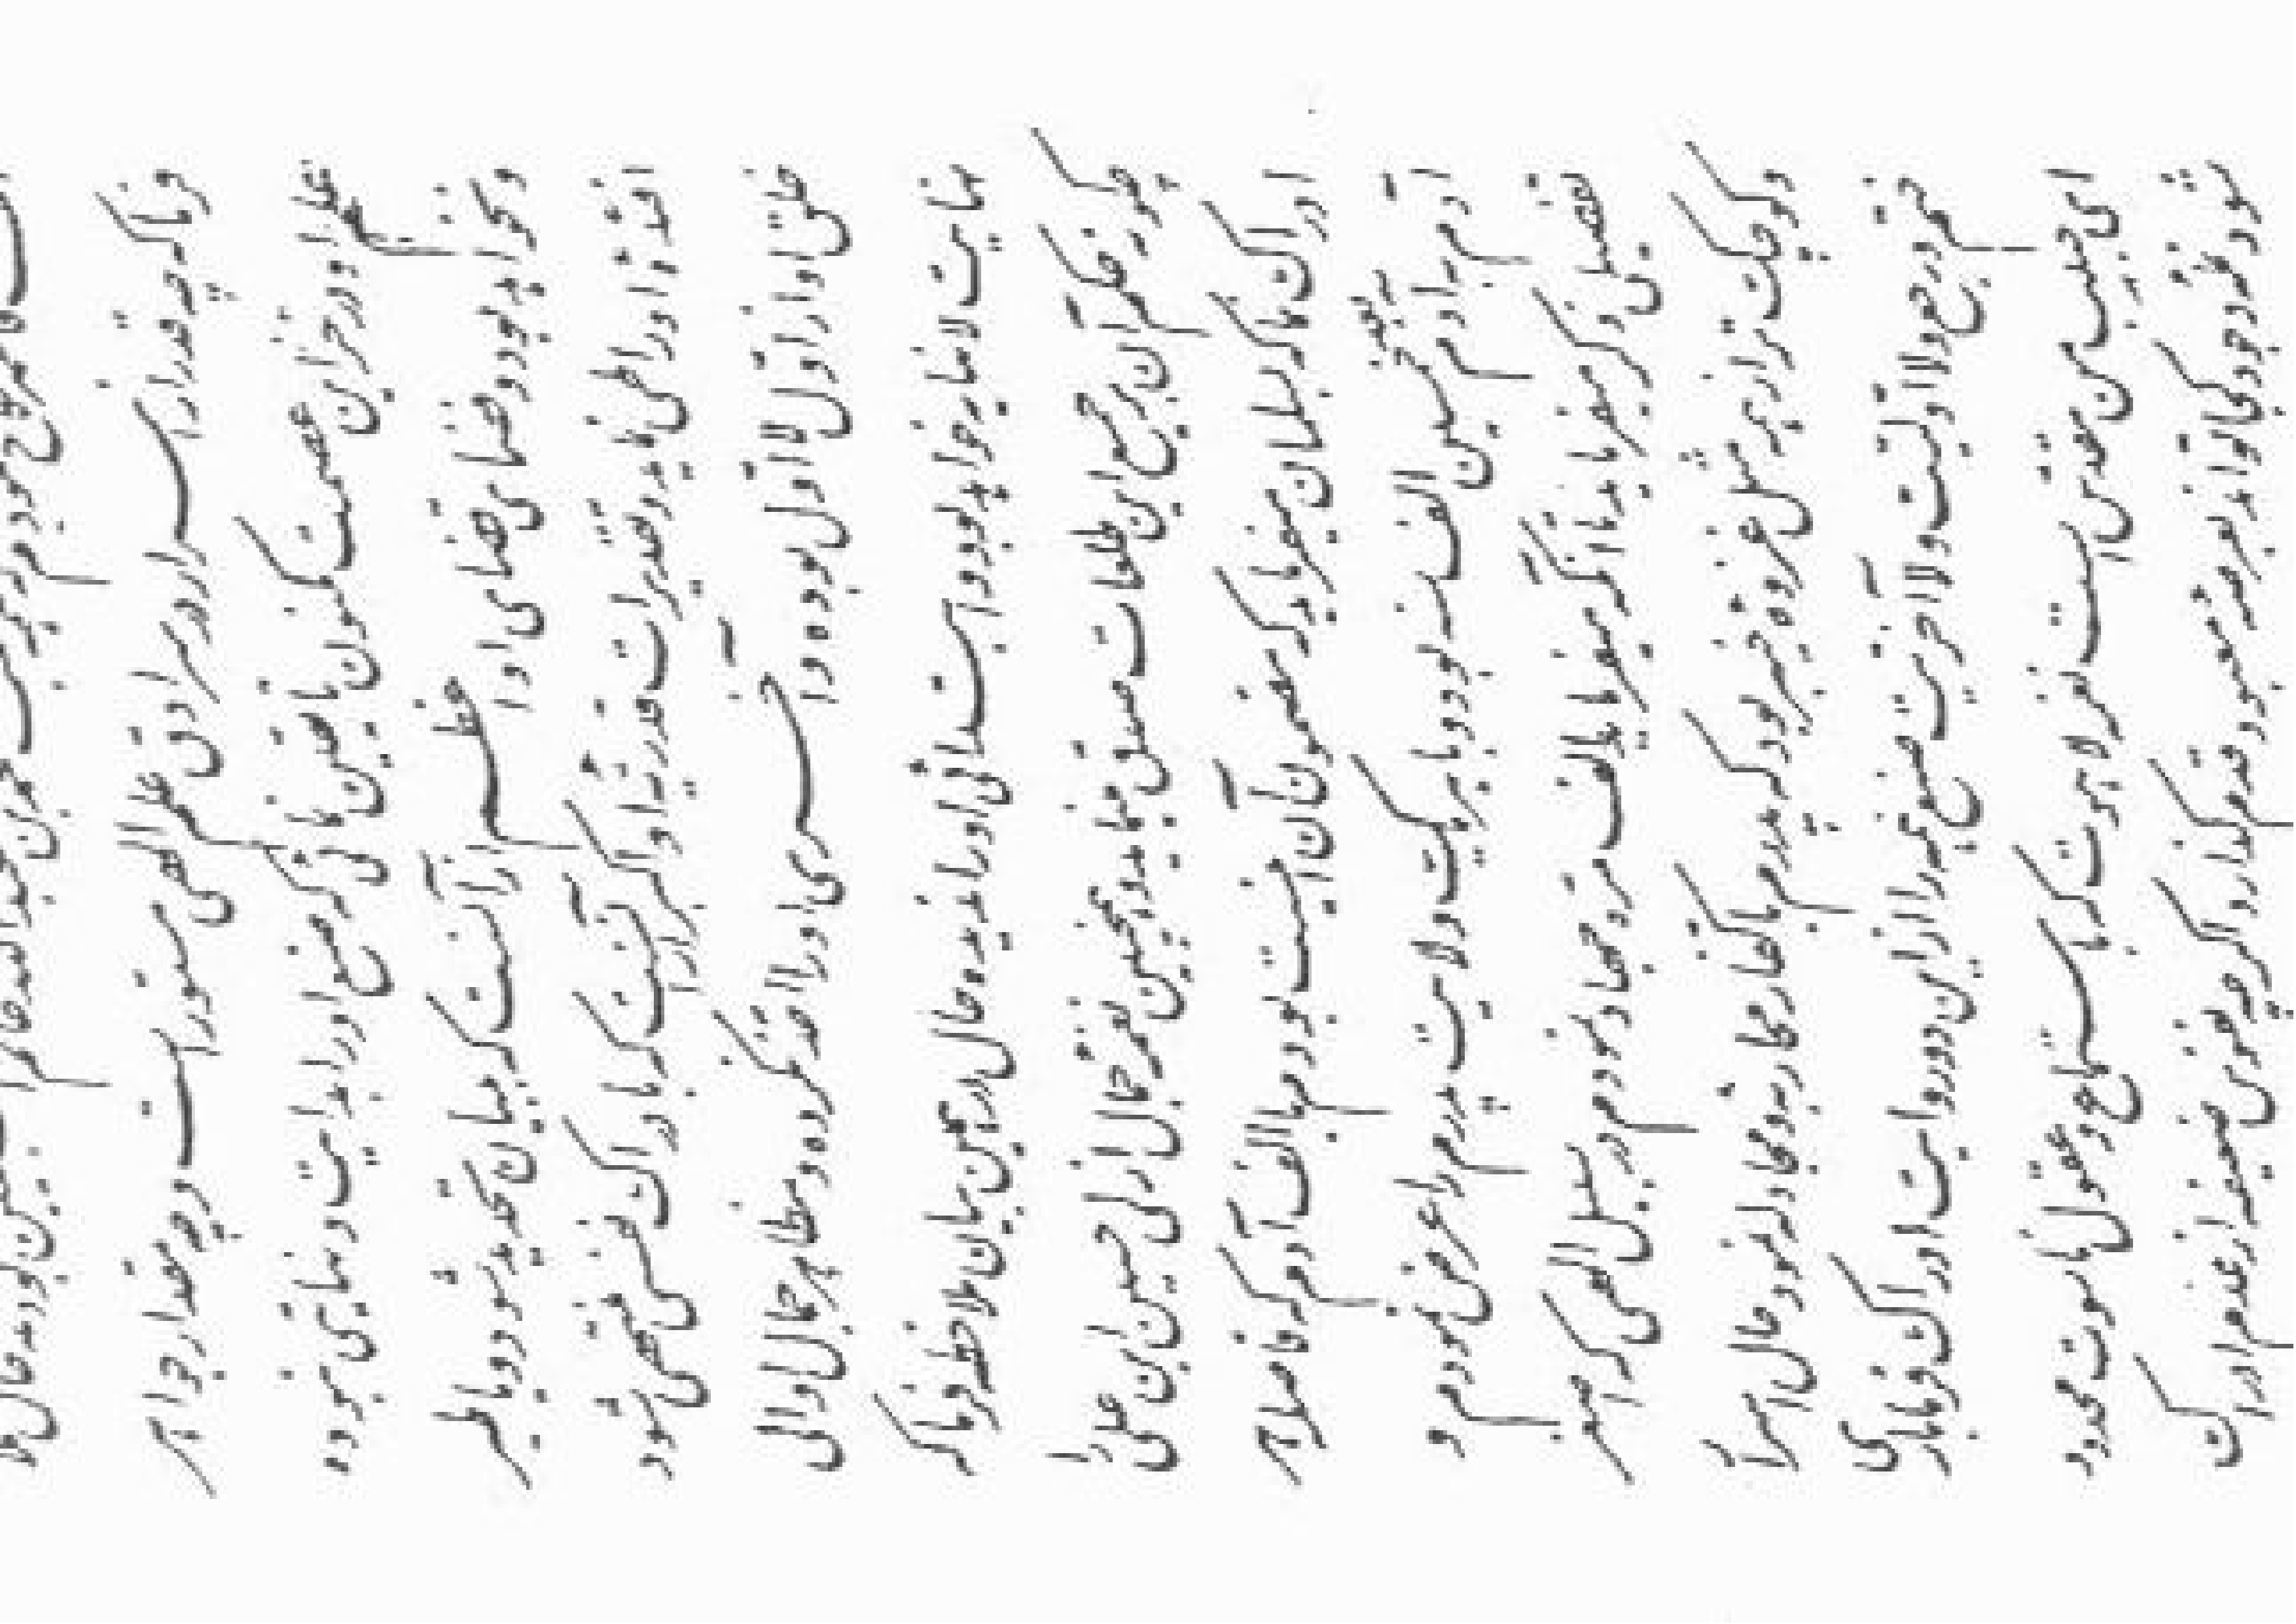 فرما که چه قدر از اسرار در سرادق علم الهی مستور است و چه مقدار جواهر
علم او در خزاین عصمت مکنون تا یقین نمائی که صنع او را بدایت و نهایتی نبوده
و نخواهد بود و فضای قضای او اعظم از آنست که ببیان تحدید شود و یا طیر
افئده او را طی نماید و تقدیرات قدریّه او اکبر از آنست که بادراک نفسی منتهی شود
خلق او از اوّل لا اوّل بوده و آخری او را اخذ نکرده و مظاهر جمال او الی
نهایت لا نهایه خواهد بود و ابتدائی او را ندیده حال در همین بیان ملاحظه فرما که
چگونه حکم آن بر جمیع این طلعات صدق مینماید و همچنین نغمه جمال ازلی حسین ابن علی را
ادراک نما که بسلمان میفرماید که مضمون آن اینست بودم با الف آدم که فاصله هر
آدم به آدم بعد خمسین الف سنه بود و با هر یک ولایت پدرم را عرض نمودم و
تفصیلی ذکر میفرماید تا آنکه میفرماید الف مرّه جهاد نمودم در سبیل الهی که اصغر
و کوچکتر از همه مثل غزوه خیبر بود که پدرم با کفّار محاربه و مجادله نمود حال اسرار
ختم و رجع و لا اوّلیت و لا آخریت صنع همه را از این دو روایت ادراک فرما باری
ای حبیب من مقدّس است نغمه لاهوت که باستماع و عقول ناسوت محدود
شود نمله وجود کی تواند بعرصه معبود قدم گذارد اگر چه نفوس ضعیفه از عدم ادراک